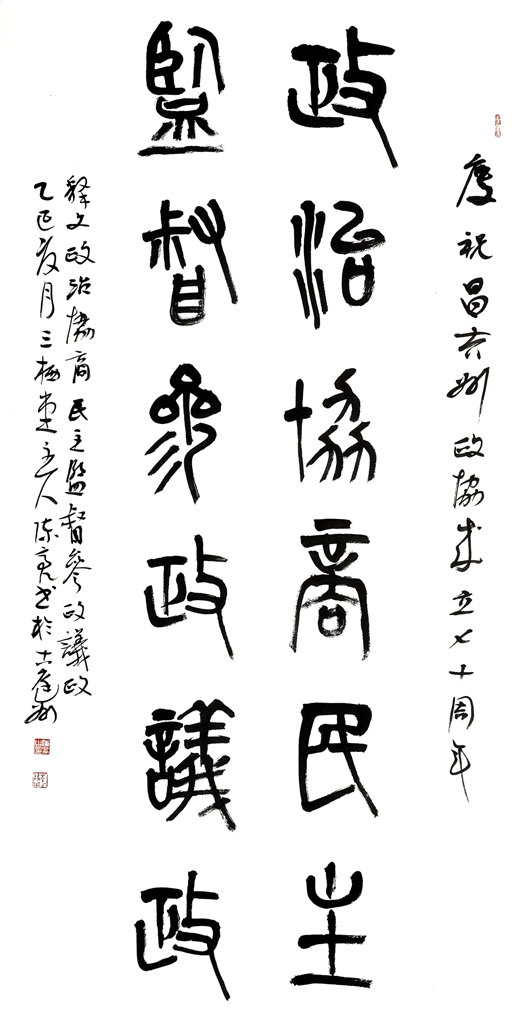 慶祝昌吉州政協成立七十周年
政治協商民主
監督參政議政
釋文政治協商民主監督參政議政
乙巳夏月三極堂主人陳亮書於古庭州